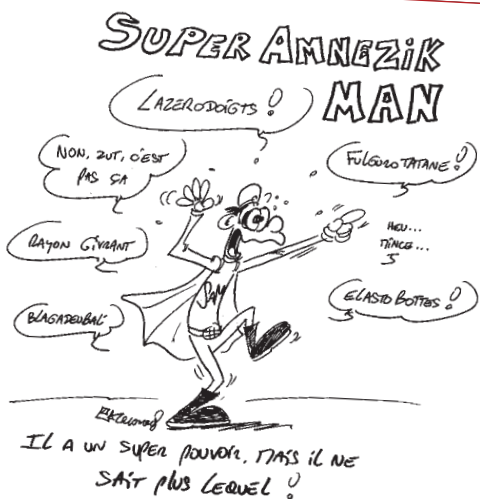 SUPER AMNEZIK
MAN
LAZERODOIGTS !
NON, ZUT, C'EST
PAS ÇA
FULGUROTATANE !
RAYON GIVRANT
HEU...
MINCE...
BLAGADENBAL
ELASTO BOTTES !
SAM
IL A UN SUPER POUVOIR, MAIS IL NE
SAIT PLUS LEQUEL !